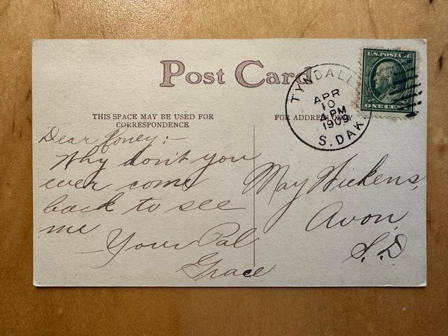 Post Card
THIS SPACE MAY BE USED FOR
CORRESPONDENCE
FOR ADDRESS ONLY
TYNDALL
APR
10
4 PM
1909
S. DAK.
U.S. POSTAGE
ONE CENT
Dear
Why don't you
ever come
back to see
me
Your Pal
Grace
May Hickens,
Avon,
S.D